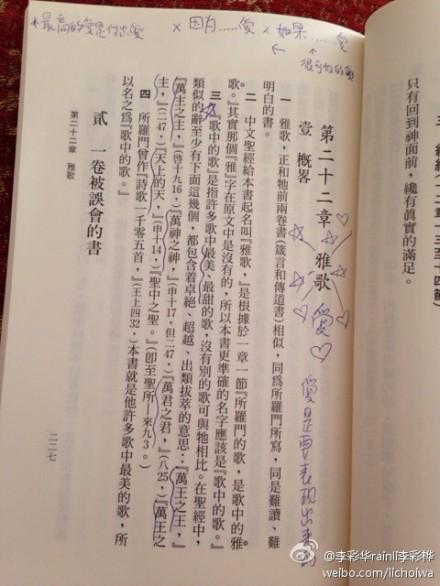 *最高的愛是付出愛
x 因為……愛
x 如果……愛
←
↑
很可怕的愛
只有回到神面前，纔有眞實的滿足。
第二十二章 雅歌
愛
愛是要表現出來的
壹 概畧
一 雅歌，正和牠前兩卷書（箴言和傳道書）相似，同爲所羅門所寫，同是難讀、難
明白的書。
二 中文聖經給本書起名叫『雅歌』，是根據一章一節『所羅門的歌，是歌中的雅
歌。』其實那個『雅』字在原文中是沒有的，所以本書更準確的名字應該是『歌中的歌。』
三 『歌中的歌』是指許多歌中最美、最甜的歌，沒有別的歌可與牠相比。在聖經中，
類似的辭至少有下面這幾個，都包含着卓絕、超越、出類拔萃的意思：『萬王之王，』
『萬主之主，』（啓十九16，）『萬神之神，』（申十17，但二47，）『萬君之君，』（八25，）『萬王之
主，』（二47，）『天上的天，』（申十14，）『聖中之聖。』（卽至聖所—來九3。）
四 所羅門曾作『詩歌一千零五首，』（王上四32，）本書就是他許多歌中最美的歌，所
以名之爲『歌中的歌。』
貳 一卷被誤會的書
第二十二章 雅歌
二二七
@李彩华rainli李彩桦
weibo.com/lichoiwa